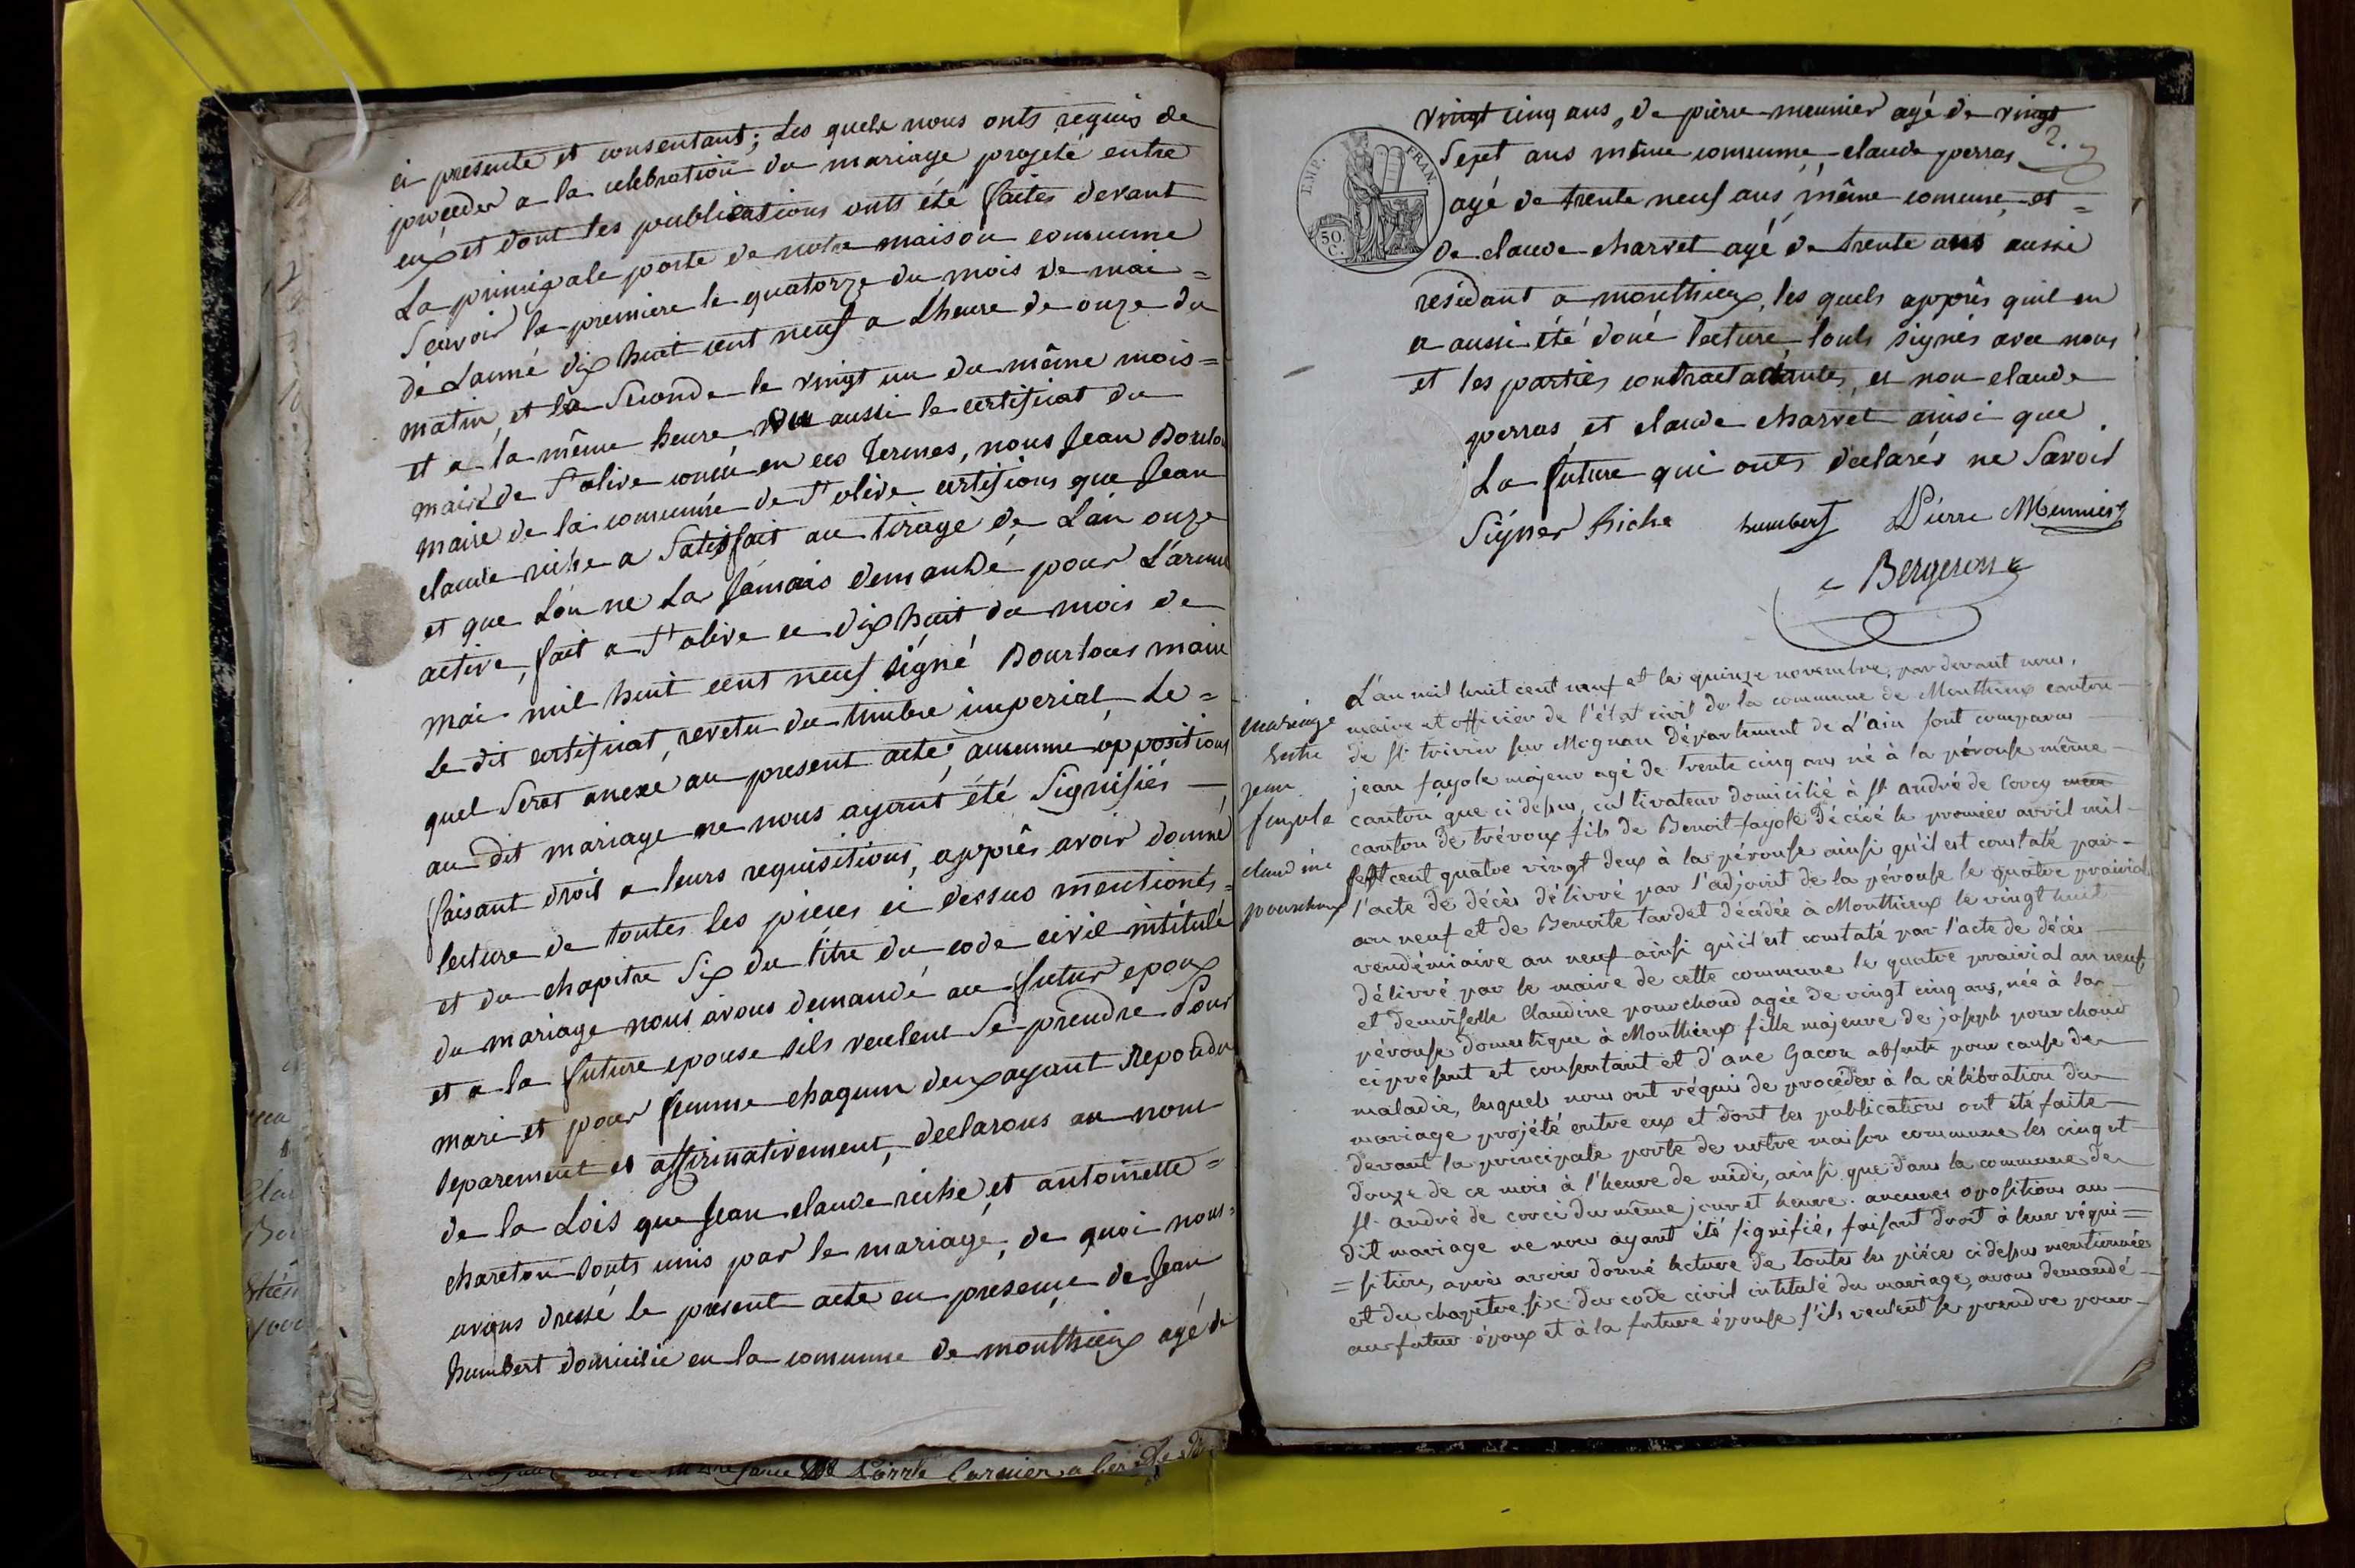 ci presente et consentant; Les quels nous onts requis de
proceder a la celebration du mariage projeté entre
eux et dont les publications onts été faites devant
La principale porte de notre maison comumne
Scavoir la premiere le quatorze du mois de mai =
de Lanné dix huit cent neuf a Lheure de onze du
matin, et la Seconde le vingt un du même mois =
et a la même heure vu aussi le certificat du
maire de St olive concu en ces termes, nous Jean
maire de la comumne de St olive certifions que Jean
claude riche a Satisfait au tirage de Lan onze
et que Lon ne La Jamais demandé pour L'armé
active, fait a St olive ce dix huit du mois de
mai mil huit cent neuf signé Bourlous maire
Le dit certificat, revetu du timbre imperial Le =
quel Serat anexé au present acte, aucumne oppositions
au dit mariage ne nous ayant été Signifiés —
faisant droit a leurs requisitions, apprês avoir donné
lecture de toutes les pieces ci dessus mentionés =
et du chapitre Six du titre du code civil intitulé
du mariage nous avons demandé au futur epoux
et a la future epouse sils veulent Se prendre Pour
mari et pour femme chaqun deux ayant repondu
separement et affirmativement, declarons au nom
de la Lois que Jean claude riche et antoinette =
chareton sonts unis par le mariage, de quoi nous =
avons dressé le présent acte en presence de Jean
humbert domicilié en la comumne de monthieux agé de
EMP. FRAN.
50. C.
vingt cinq ans, de pierre meunier agé de vingt
Sept ans même comumne, claude perras
agé de trente neuf ans, même comumne, et =
de claude charvet agé de trente ans aussi
residant a monthieux, les quels apprês quil en
a aussi été doné lecture, sonts signés avec nous
et les parties contractantes, et non claude
perras et claude charvet ainsi que
La future qui onts declarés ne Savoir
Signer Riche humbert Pierre Meunier
Bergeron
mariage
Entre
jean
fayole
claudine
pourchoux
L'an mil huit cent neuf et le quinze novembre, par devant nous,
maire et officier de l'état civil de la commune de Monthieux canton
de St trivier sur Mognan département de L'ain sont comparus
jean fayole majeur agé de trente cinq ans né à la pérouse même
canton que ci dessus, cultivateur domicilié à St andré de Corcy
canton de trévoux fils de Benoit fayole décédé le premier avril mil
sept cent quatre vingt deux à la pérouse ainsi qu'il est constaté par
l'acte de décès délivré par l'adjoint de la pérouse le quatre prairial
an neuf et de Benoite tardet décédée à Monthieux le vingt huit
vendémiaire an neuf ainsi qu'il est constaté par l'acte de décès
délivré par le maire de cette commune le quatre prairial an neuf
et demoiselle Claudine pourchoud agée de vingt cinq ans, née à la
pérouse domestique à Monthieux fille majeure de joseph pourchoud
ci présent et consentant et d'ane Gacon absente pour cause de
maladie, lesquels nous ont réquis de procéder à la célébration du
mariage projété entre eux et dont les publications ont été faite
devant la principale porte de notre maison commune les cinq et
douze de ce mois à l'heure de midi, ainsi que dans la commune de
St. andré de corci du même jour et heure. aucunes opositions au
dit mariage ne nous ayant été signifié, faisant droit à leur réqui =
= sition, après avoir donné lecture de toutes les piéces ci dessus mentionnées
et du chapitre six du code civil intitulé du mariage, avons demandé
au futur époux et à la future épouse s'ils veulent se prendre pour